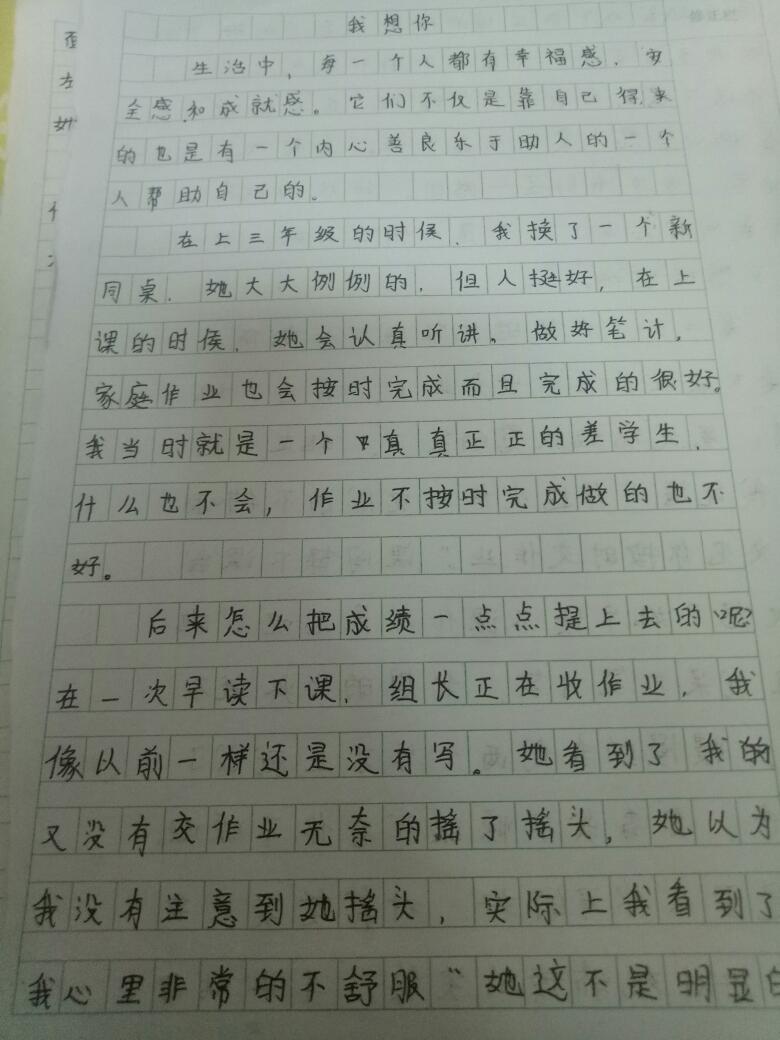 我想你
生活中，每一个人都有幸福感，安
全感和成就感。它们不仅是靠自己得来
的也是有一个内心善良乐于助人的一个
人帮助自己的。
在上三年级的时候，我换了一个新
同桌，她大大例例的，但人挺好，在上
课的时候，她会认真听讲。做好笔计，
家庭作业也会按时完成而且完成的很好。
我当时就是一个真真正正的差学生，
什么也不会，作业不按时完成做的也不
好。
后来怎么把成绩一点点提上去的呢？
在一次早读下课，组长正在收作业，我
像以前一样还是没有写。她看到了我的
又没有交作业无奈的摇了摇头，她以为
我没有注意到她摇头，实际上我看到了
我心里非常的不舒服“她这不是明显的